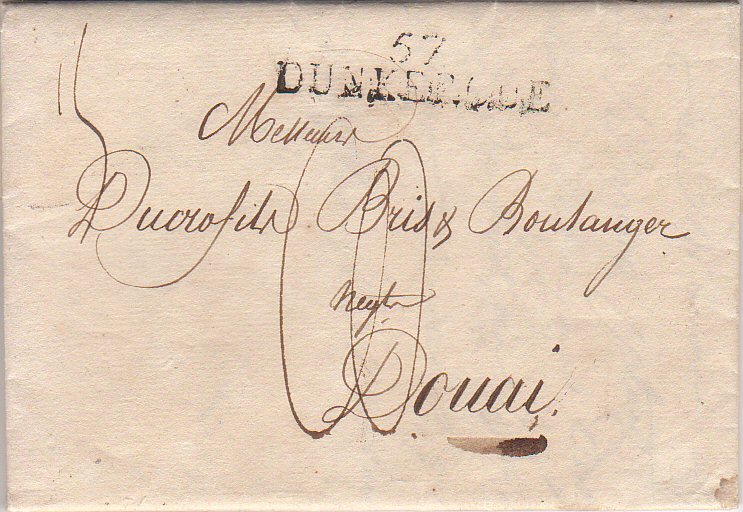 57
DUNKERQUE
Messieurs
Ducrofils Bris & Boulanger
Negts
Douai.